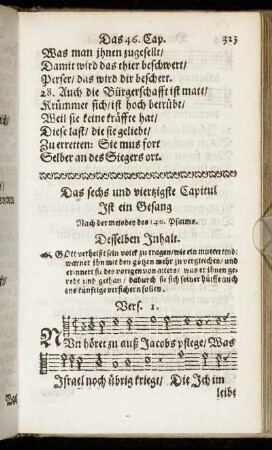 Das 46. Cap. 323
Was man jhnen zugesellt/
Damit wird das thier beschwert/
Perser/ das wird dir beschert.
28. Auch die Bürgerschafft ist matt/
Krümmet sich/ ist hoch betrübt/
Weil sie keine kräffte hat/
Diese last/ die sie geliebt/
Zu erretten: Sie mus fort
Selber an des Siegers ort.
Das sechs und viertzigste Capitul
Ist ein Gesang
Nach der melodey des 140. Psalms.
Desselben Inhalt.
GOtt verheißt sein volck zu tragen/ wie ein mutter kind:
warnet jhn mit den götzen mehr zu vergleichen/ und
erinnert sie des vorigen von alters/ was er jhnen ge-
redt und gethan/ dadurch sie sich seiner hülffe auch
ins künftige versichern sollen.
Vers. 1.
NUn höret zu auß Jacobs pflege/ Was
Israel noch übrig kriege/ Die Ich im
leibe